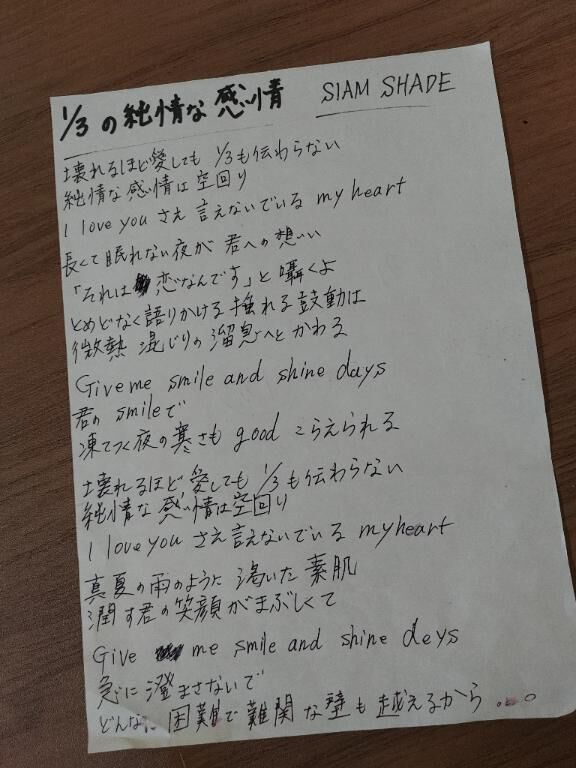 1/3の純情な感情 SIAM SHADE
壊れるほど愛しても 1/3も伝わらない
純情な感情は空回り
I love you さえ 言えないでいる my heart
長くて眠れない夜が 君への想い
「それは 恋なんです」と 囁くよ
とめどなく語りかける 揺れる鼓動は
微熱 混じりの溜息へとかわる
Give me smile and shine days
君の smile で
凍てつく夜の寒さも good こらえられる
壊れるほど愛しても 1/3も伝わらない
純情な感情は空回り
I love you さえ言えないでいる my heart
真夏の雨のように 渇いた素肌
潤す君の笑顔がまぶしくて
Give me smile and shine deys
急に澄まさないで
どんなに困難で難関な壁も越えるから...。